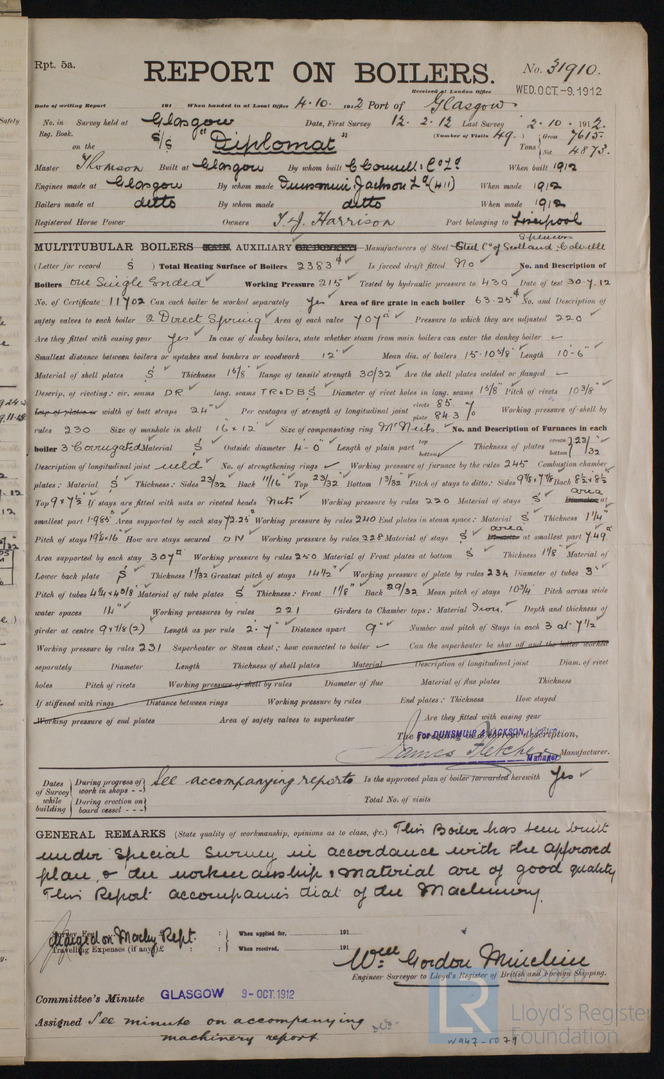 Rpt. 5a.
REPORT ON BOILERS.
No. 31910.
Received at London Office
WED. OCT. -9. 1912
Date of writing Report 191 When handed in at Local Office 4.10. 1912 Port of Glasgow
No. in Survey held at Glasgow Date, First Survey 12. 2. 12 Last Survey 2-10. 1912.
Reg. Book. (Number of Visits 49.)
on the S/S "Diplomat" Tons { Gross 7615. Net 4873.
Master Thomson Built at Glasgow By whom built C Connell & Co Ld When built 1912
Engines made at Glasgow By whom made Dunsmuir Jackson Ld (411) When made 1912
Boilers made at ditto By whom made ditto When made 1912
Registered Horse Power Owners T. & J. Harrison Port belonging to Liverpool
MULTITUBULAR BOILERS MAIN, AUXILIARY OR DONKEY.— Manufacturers of Steel Steel Co of Scotland, Colvill
(Letter for record S ) Total Heating Surface of Boilers 2383 Is forced draft fitted No No. and Description of
Boilers One Single Ended Working Pressure 215 Tested by hydraulic pressure to 430 Date of test 30.7.12
No. of Certificate 11702 Can each boiler be worked separately Yes Area of fire grate in each boiler 63.25 No. and Description of
safety valves to each boiler 2 Direct Spring Area of each valve 7.07" Pressure to which they are adjusted 220
Are they fitted with easing gear Yes In case of donkey boilers, state whether steam from main boilers can enter the donkey boiler
Smallest distance between boilers or uptakes and bunkers or woodwork 12" Mean dia. of boilers 15-10 5/8" Length 10-6"
Material of shell plates S Thickness 1 5/8 Range of tensile strength 30/32 Are the shell plates welded or flanged
Descrip. of riveting: cir. seams DR long. seams TR&DBS Diameter of rivet holes in long. seams 1 5/8 Pitch of rivets 10 3/8"
Lap of plates or width of butt straps 24" Per centages of strength of longitudinal joint rivets 85. plate 84.3 % Working pressure of shell by
rules 230 Size of manhole in shell 16 x 12" Size of compensating ring McNeil's No. and Description of Furnaces in each
boiler 3 Corrugated Material S Outside diameter 4'-0" Length of plain part top bottom Thickness of plates crown bottom 23/32
Description of longitudinal joint weld No. of strengthening rings Working pressure of furnace by the rules 245 Combustion chamber
plates: Material S Thickness: Sides 23/32 Back 11/16 Top 23/32 Bottom 1 3/32 Pitch of stays to ditto: Sides 9 1/8 x 7 7/8 Back 8 1/2 x 8 1/2
Top 9 x 7 1/2 If stays are fitted with nuts or riveted heads Nuts Working pressure by rules 220 Material of stays S area Diameter at
smallest part 1.985 Area supported by each stay 72.25 Working pressure by rules 240 End plates in steam space: Material S Thickness 1 1/4"
Pitch of stays 19 1/8 x 16 How are stays secured DN Working pressure by rules 228 Material of stays S area Diameter at smallest part 7.49
Area supported by each stay 307 Working pressure by rules 250 Material of Front plates at bottom S Thickness 1 1/8 Material of
Lower back plate S Thickness 1 1/32 Greatest pitch of stays 14 1/2" Working pressure of plate by rules 234 Diameter of tubes 3"
Pitch of tubes 4 1/4 x 4 3/8 Material of tube plates S Thickness: Front 1 1/8" Back 29/32 Mean pitch of stays 10 3/4 Pitch across wide
water spaces 14" Working pressures by rules 221 Girders to Chamber tops: Material Iron. Depth and thickness of
girder at centre 9 x 7/8 (2) Length as per rule 2-7" Distance apart 9" Number and pitch of Stays in each 3 at 7 1/2"
Working pressure by rules 231 Superheater or Steam chest; how connected to boiler Can the superheater be shut off and the boiler worked
separately Diameter Length Thickness of shell plates Material Description of longitudinal joint Diam. of rivet
holes Pitch of rivets Working pressure of shell by rules Diameter of flue Material of flue plates Thickness
If stiffened with rings Distance between rings Working pressure by rules End plates: Thickness How stayed
Working pressure of end plates Area of safety valves to superheater Are they fitted with easing gear
The foregoing is a correct description,
FOR DUNSMUIR & JACKSON, LIMITED
James Fletcher Manufacturer.
Manager
Dates of Survey while building { During progress of work in shops - - See accompanying reports Is the approved plan of boiler forwarded herewith Yes
{ During erection on board vessel - - - Total No. of visits
GENERAL REMARKS (State quality of workmanship, opinions as to class, &c.) This Boiler has been built
under Special Survey in accordance with the approved
plan, & the workmanship & material are of good quality
This Report accompanies that of the Machinery.
Survey Fee When applied for, 191
Charged on Machy Rept.
Travelling Expenses (if any) £ When received, 191
Wm Gordon
Engineer Surveyor to Lloyd's Register of British and Foreign Shipping.
Committee's Minute GLASGOW 9-OCT. 1912
Assigned See minute on accompanying
machinery report
LR Lloyd's Register Foundation
W947-0079